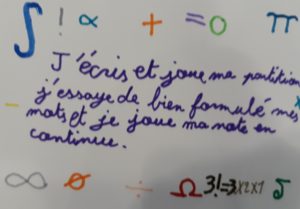 ∫ ! ∝ + = 0 π
J'écris et joue ma partition
j'essaye de bien formulé mes
mots et je joue ma note en
continue.
∞ ∅ ÷ Ω 3!=3x2x1